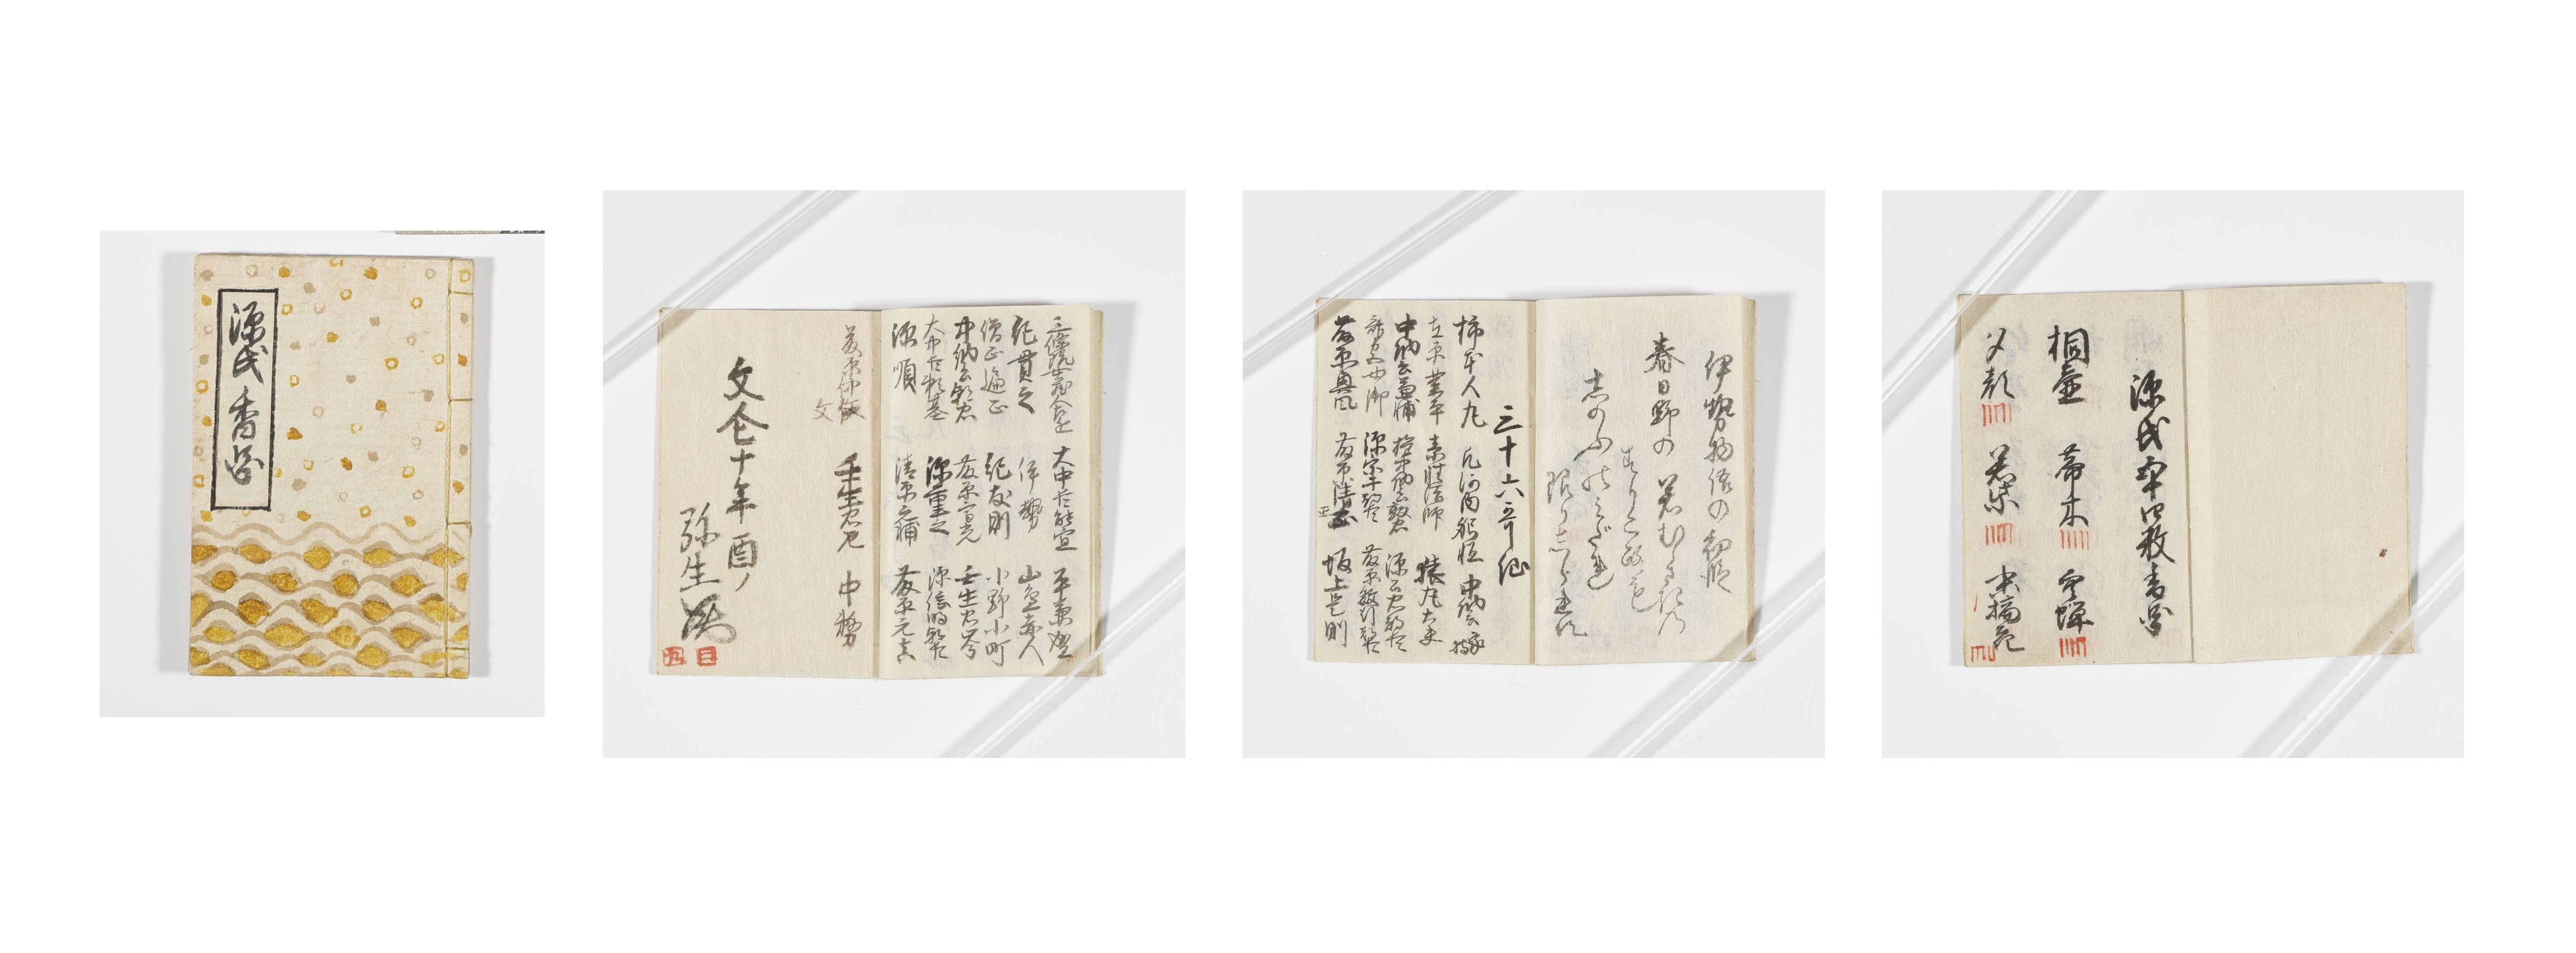 源氏香図
三條院女蔵人左近 大中臣能宣 平兼盛
紀貫之 伊勢 山邊赤人
僧正遍正 紀友則 小野小町
中納言朝忠 藤原高光 壬生忠岑
大中臣頼基 源重之 源信明朝臣
源順 清原元輔 藤原元真
藤原仲文 壬生忠見 中務
文仝十年酉ノ
弥生
伊勢物語の初段
春日野の若むらさきの
すりころも
志のふのみだれ
限りしられす
三十六哥仙
柿本人丸 凡河内躬恒 中納言家持
在原業平 素性法師 猿丸大夫
中納言兼輔 権中納言敦忠 源公忠朝臣
斎宮女御 源宗于朝臣 藤原敏行朝臣
藤原興風 藤原清正 坂上是則
源氏五十四帖香図
桐壷 帚木 空蝉
夕顔 若紫 末摘花